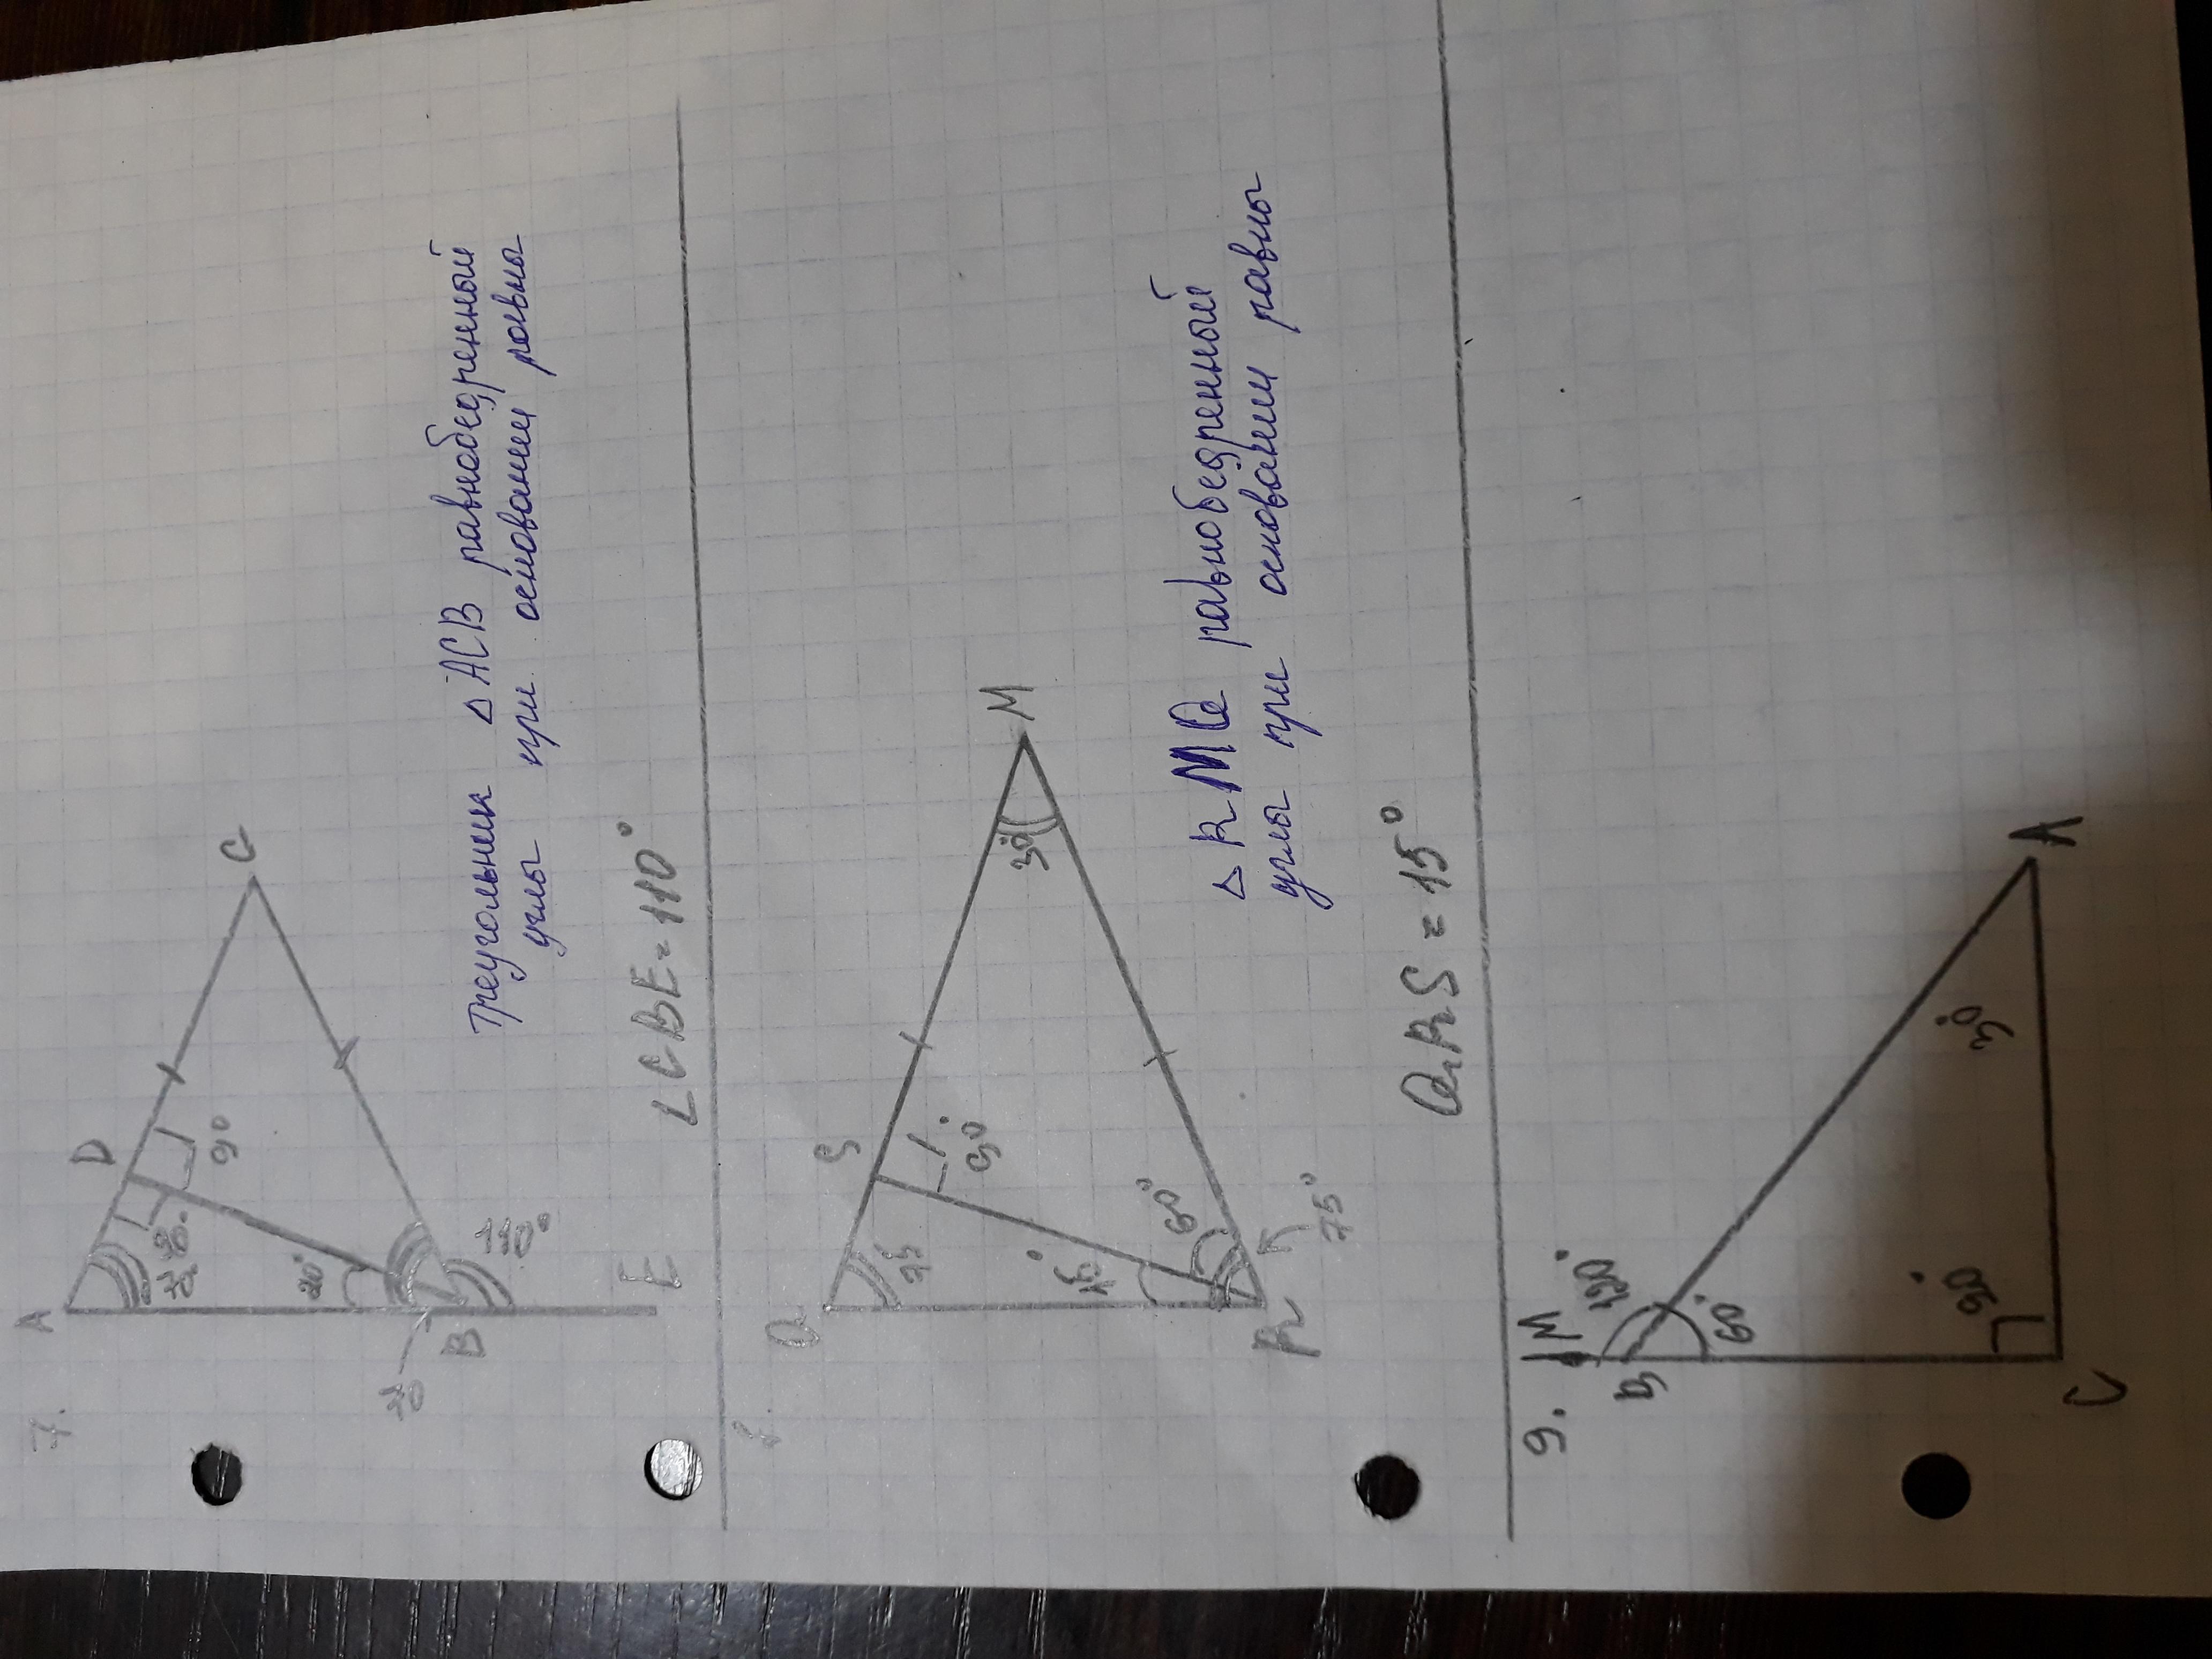 7.
A
D
C
90°
90°
70°
20°
70°
B
110°
E
Треугольник △ ACB равнобедренный
углы при основании равны
∠CBE = 110°
Q
S
M
75
90°
30°
15°
60°
R
75°
△ RMQ равнобедренный
углы при основании равны
QRS = 15°
9.
M
B
120°
60°
90°
30°
C
A